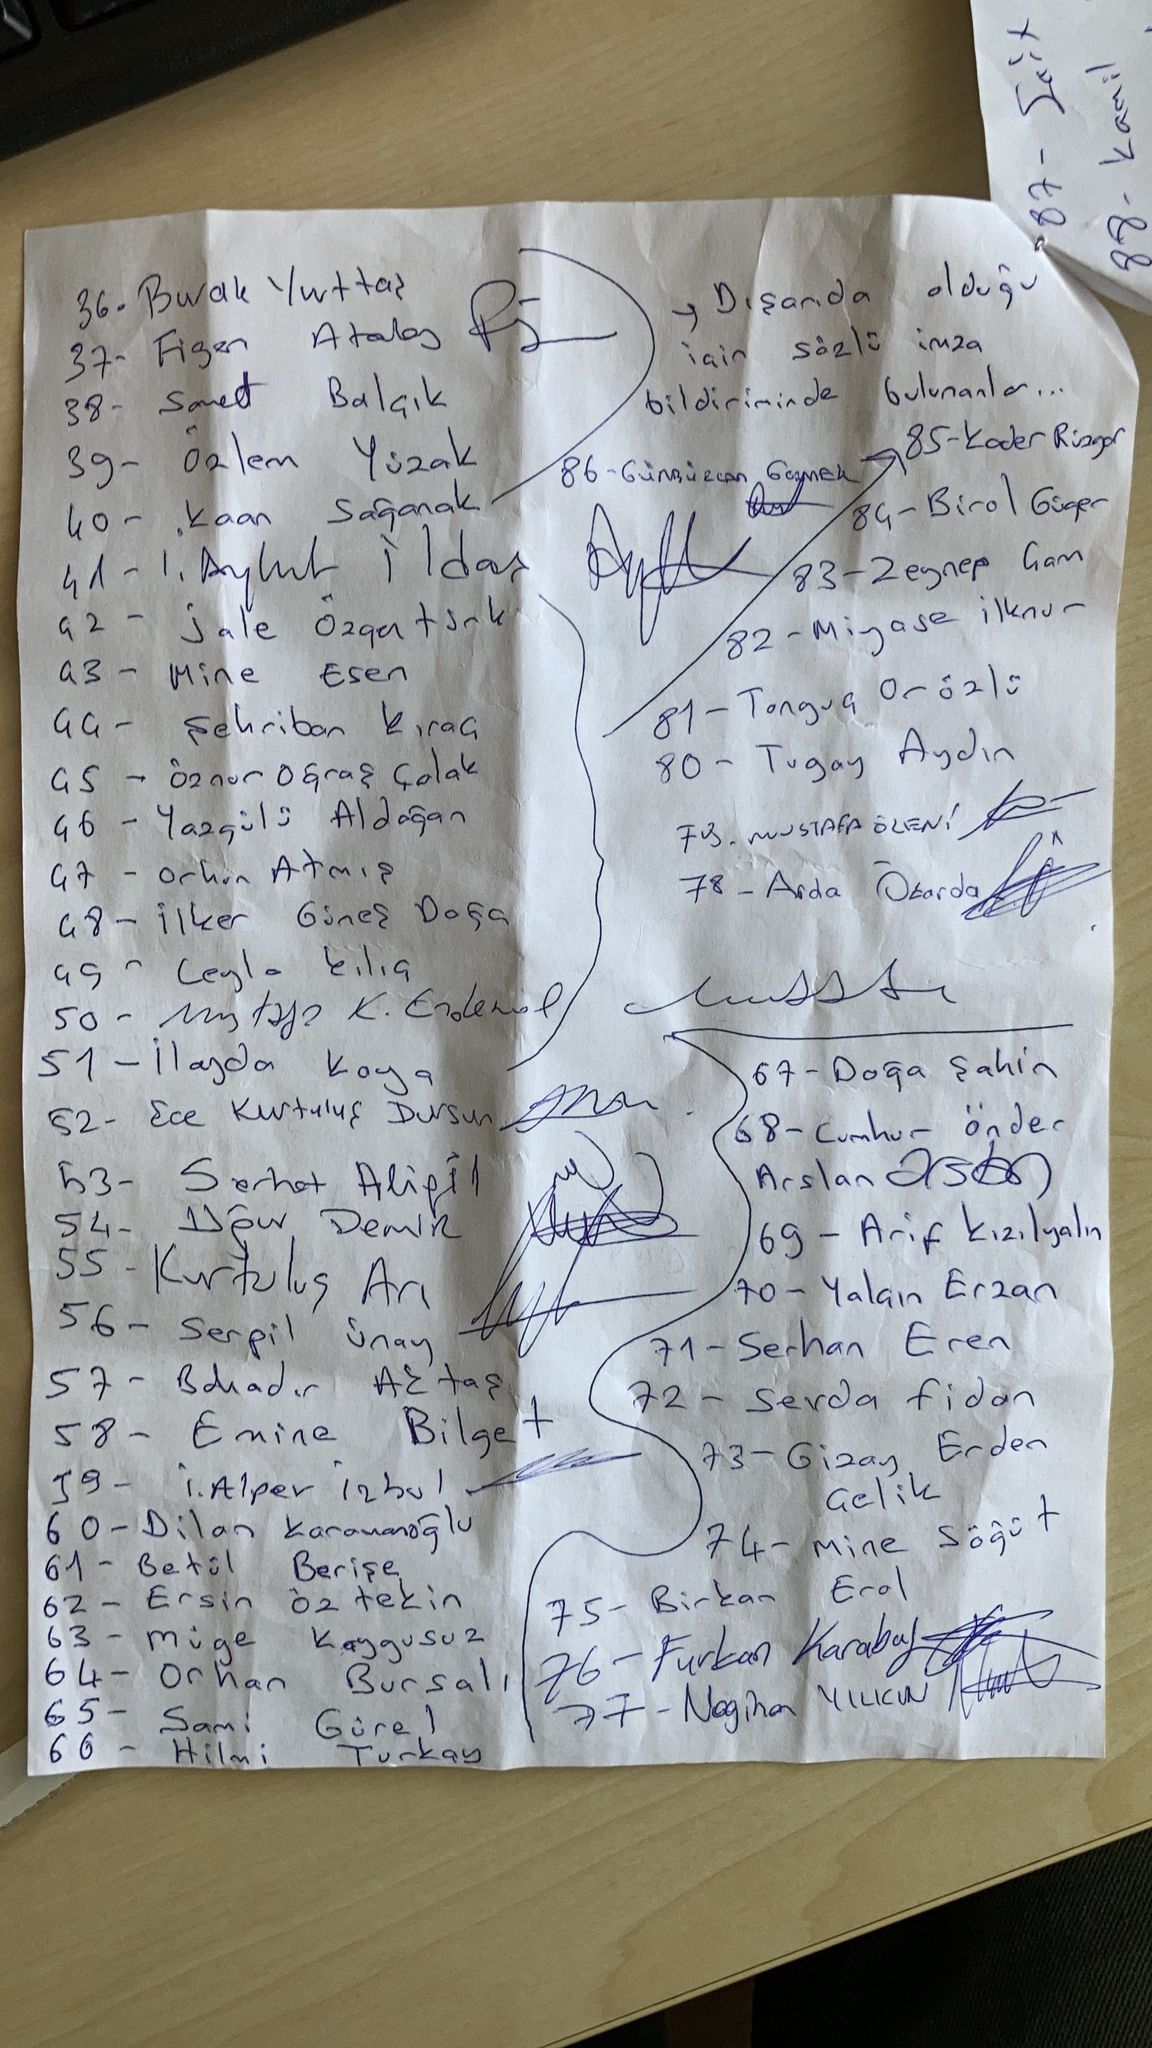 36- Burak Yurttaş
37- Figen Atalay
38- Samet Balçık
39- Özlem Yüzak
40- Kaan Sağanak
41- İ. Aykut İldaş
42- Jale Özgentürk
43- Mine Esen
44- Şehriban Kıraç
45- Öznur Oğraş Çolak
46- Yazgülü Aldoğan
47- Orhun Atmış
48- İlker Güneş Doğa
49- Ceyla Kılıç
50- Mustafa K. Erdemol
51- İlayda Kaya
52- Ece Kurtuluş Dursun
53- Serhat Aligil
54- Uğur Demir
55- Kurtuluş Arı
56- Serpil Ünay
57- Bahadır Aktaş
58- Emine Bilget
59- İ. Alper İzbul
60- Dilan Karamanoğlu
61- Betül Berişe
62- Ersin Öztekin
63- Müge Kaygusuz
64- Orhan Bursalı
65- Sami Gürel
66- Hilmi Türkay
→ Dışarıda olduğu
için sözlü imza
bildiriminde bulunanlar...
85- Kader Rüzgar
86- Gürbüzcan
84- Birol Güger
83- Zeynep Çam
82- Miyase İlknur
81- Tonguç Orözlü
80- Tugay Aydın
79. MUSTAFA
78- Arda
67- Doğa Şahin
68- Cumhur Önder
Arslan
69- Arif Kızılyalın
70- Yalçın Erzan
71- Serhan Eren
72- Serda Fidan
73- Gizay Erden
Çelik
74- Mine Söğüt
75- Birkan Erol
76- Furkan Karabay
77- Nagihan YILKIN
87- Sait
88- Kamil